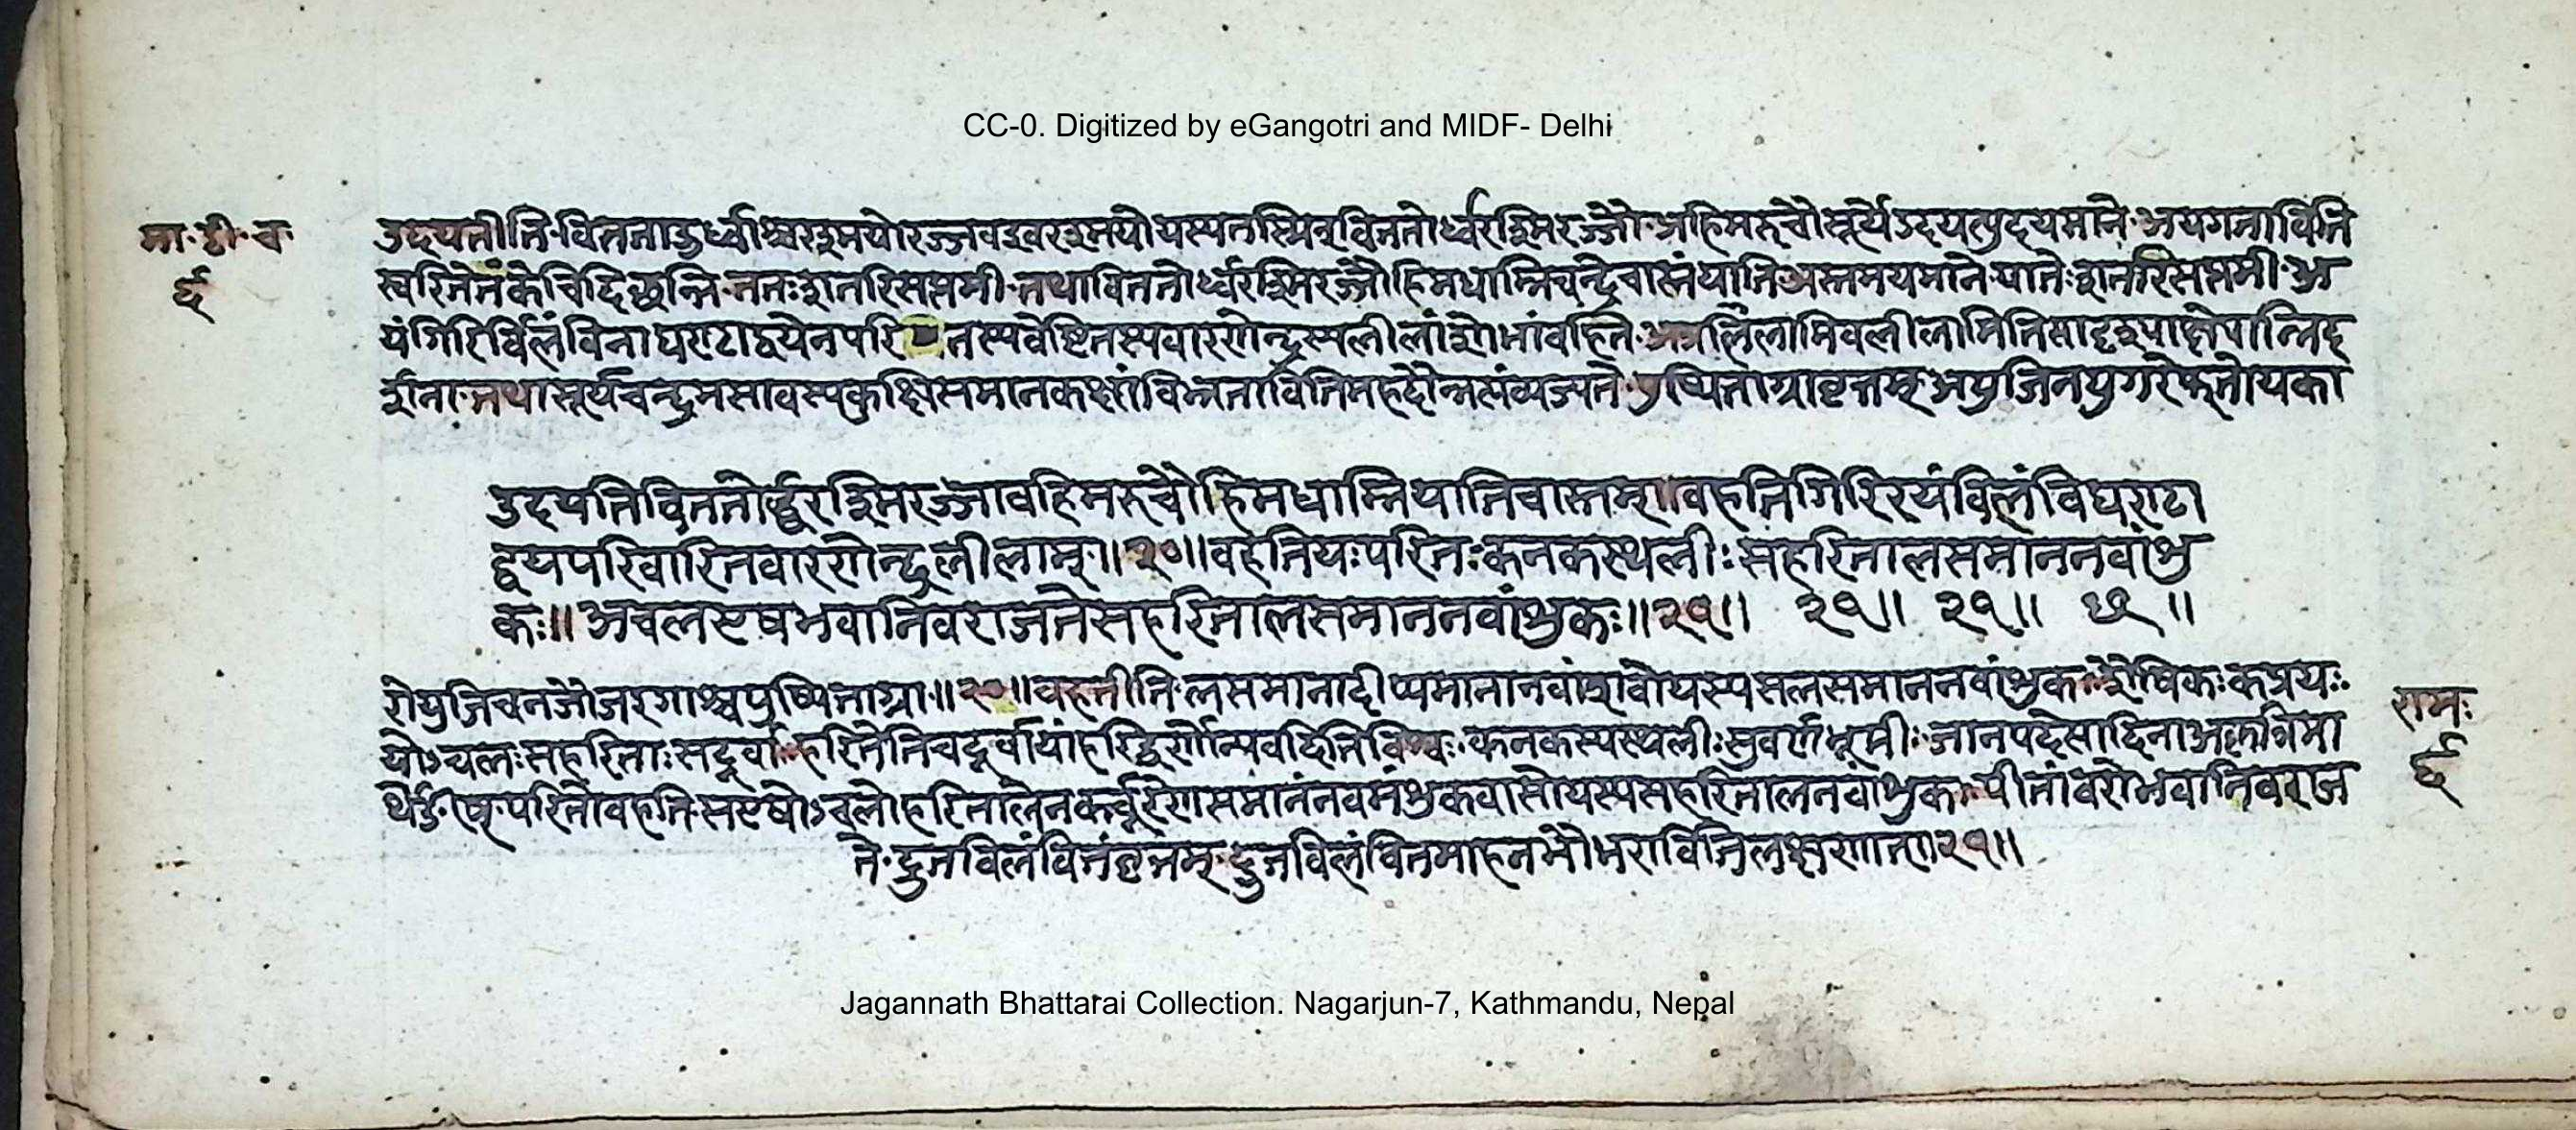 CC-0. Digitized by eGangotri and MIDF- Delhi
मा॰ टी॰ च॰
६
उदयतीति॰ विततावुर्ध्वाश्च रश्मयो रज्जव इव रश्मयो यस्य तस्मिन् विततोर्ध्वरश्मिरज्जौ॰ अहिमरुचौ सूर्ये उदयत्युदयमाने॰ अयगताविति
स्वरितेतं केचिदिच्छन्ति॰ ततः शतरि सप्तमी॰ तथा विततोर्ध्वरश्मिरज्जौ हिमधाम्नि चन्द्रे चास्तं याति अस्तमयमाने॰ यातेः शतरि सप्तमी॰ अ
यं गिरिर्विलंविना घण्टाद्वयेन परि तस्य वेष्टितस्य वारणेन्द्रस्य लीलां शोभां वहति॰ लीलामिव लीलामिति सादृश्याक्षेपान्निद
र्शना॰ तथा सूर्यचन्द्रमसावस्य कुक्षिसमानकक्षां विभ्रताविति महदौन्नत्यं व्यज्यते॰ पुष्पिताग्रावृत्तम्॰ अयुजि नयुगरेफतो यका
उदयति विततोर्द्ध्वरश्मिरज्जावहिमरुचौ हिमधाम्नि याति चास्तम्॥ वहति गिरिरयं विलंविघण्टा
द्वयपरिवारितवारणेन्द्रलीलाम्॥२०॥ वहति यः परितः कनकस्थलीः सहरिता लसमाननवांशु
कः॥ अचल एष भवानिव राजते स हरितालसमाननवांशुकः॥२१॥ २१॥ २१॥ ॥
रो युजि च नजौ जरगाश्च पुष्पिताग्रा॥२०॥ वहतीति॰ लसमाना दीप्यमाना नवांशवो यस्य स लसमाननवांशुकः शैषिकः कप्रत्ययः॰
योऽचलः सहरिताः सदूर्वाः हरितेति च दूर्वायां हरिद्वर्णे विश्वः॰ कनकस्य स्थलीः सुवर्णभूमीः जानपदेत्यादिना अकृत्रिमा
र्थे ङीष्॰ परितो वहति॰ स एषोऽचलो हरितालेन कर्वूरेण समानं नवमंशुकं वासो यस्य स हरितालनवांशुकः पीतांवरो भवानिव राज
ते॰ द्रुतविलंवितं वृत्तम्॰ द्रुतविलंवितमाह नभौ भराविति लक्षणात्॥२१॥
रामः
६
Jagannath Bhattarai Collection. Nagarjun-7, Kathmandu, Nepal